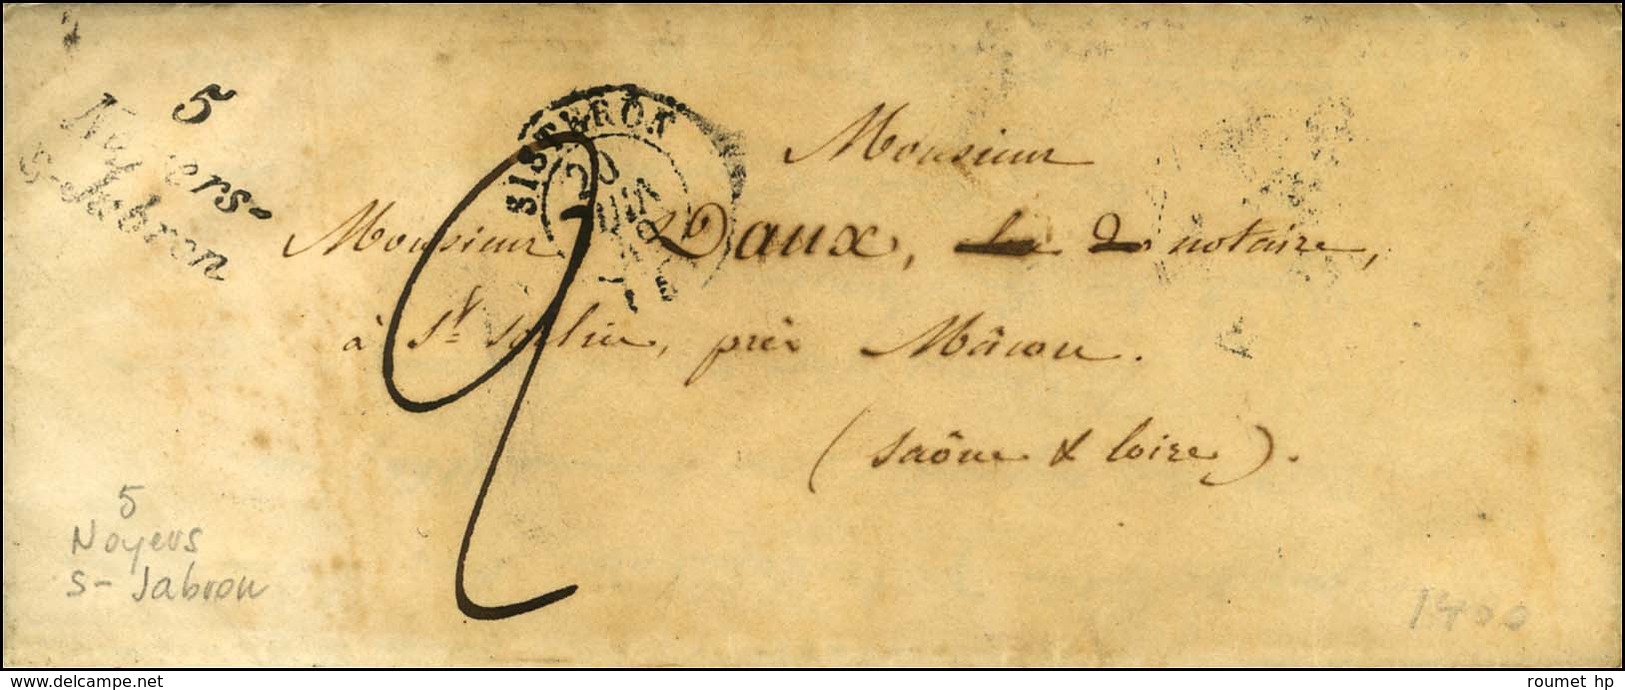 5
Noyers-
S-Jabron
SISTERON
20
2
Monsieur
Monsieur Daux, notaire,
à St Sorlin, près Mâcon.
(Saône & Loire).
5
Noyers
S- Jabron
1400
delcampe.net
roumet hp